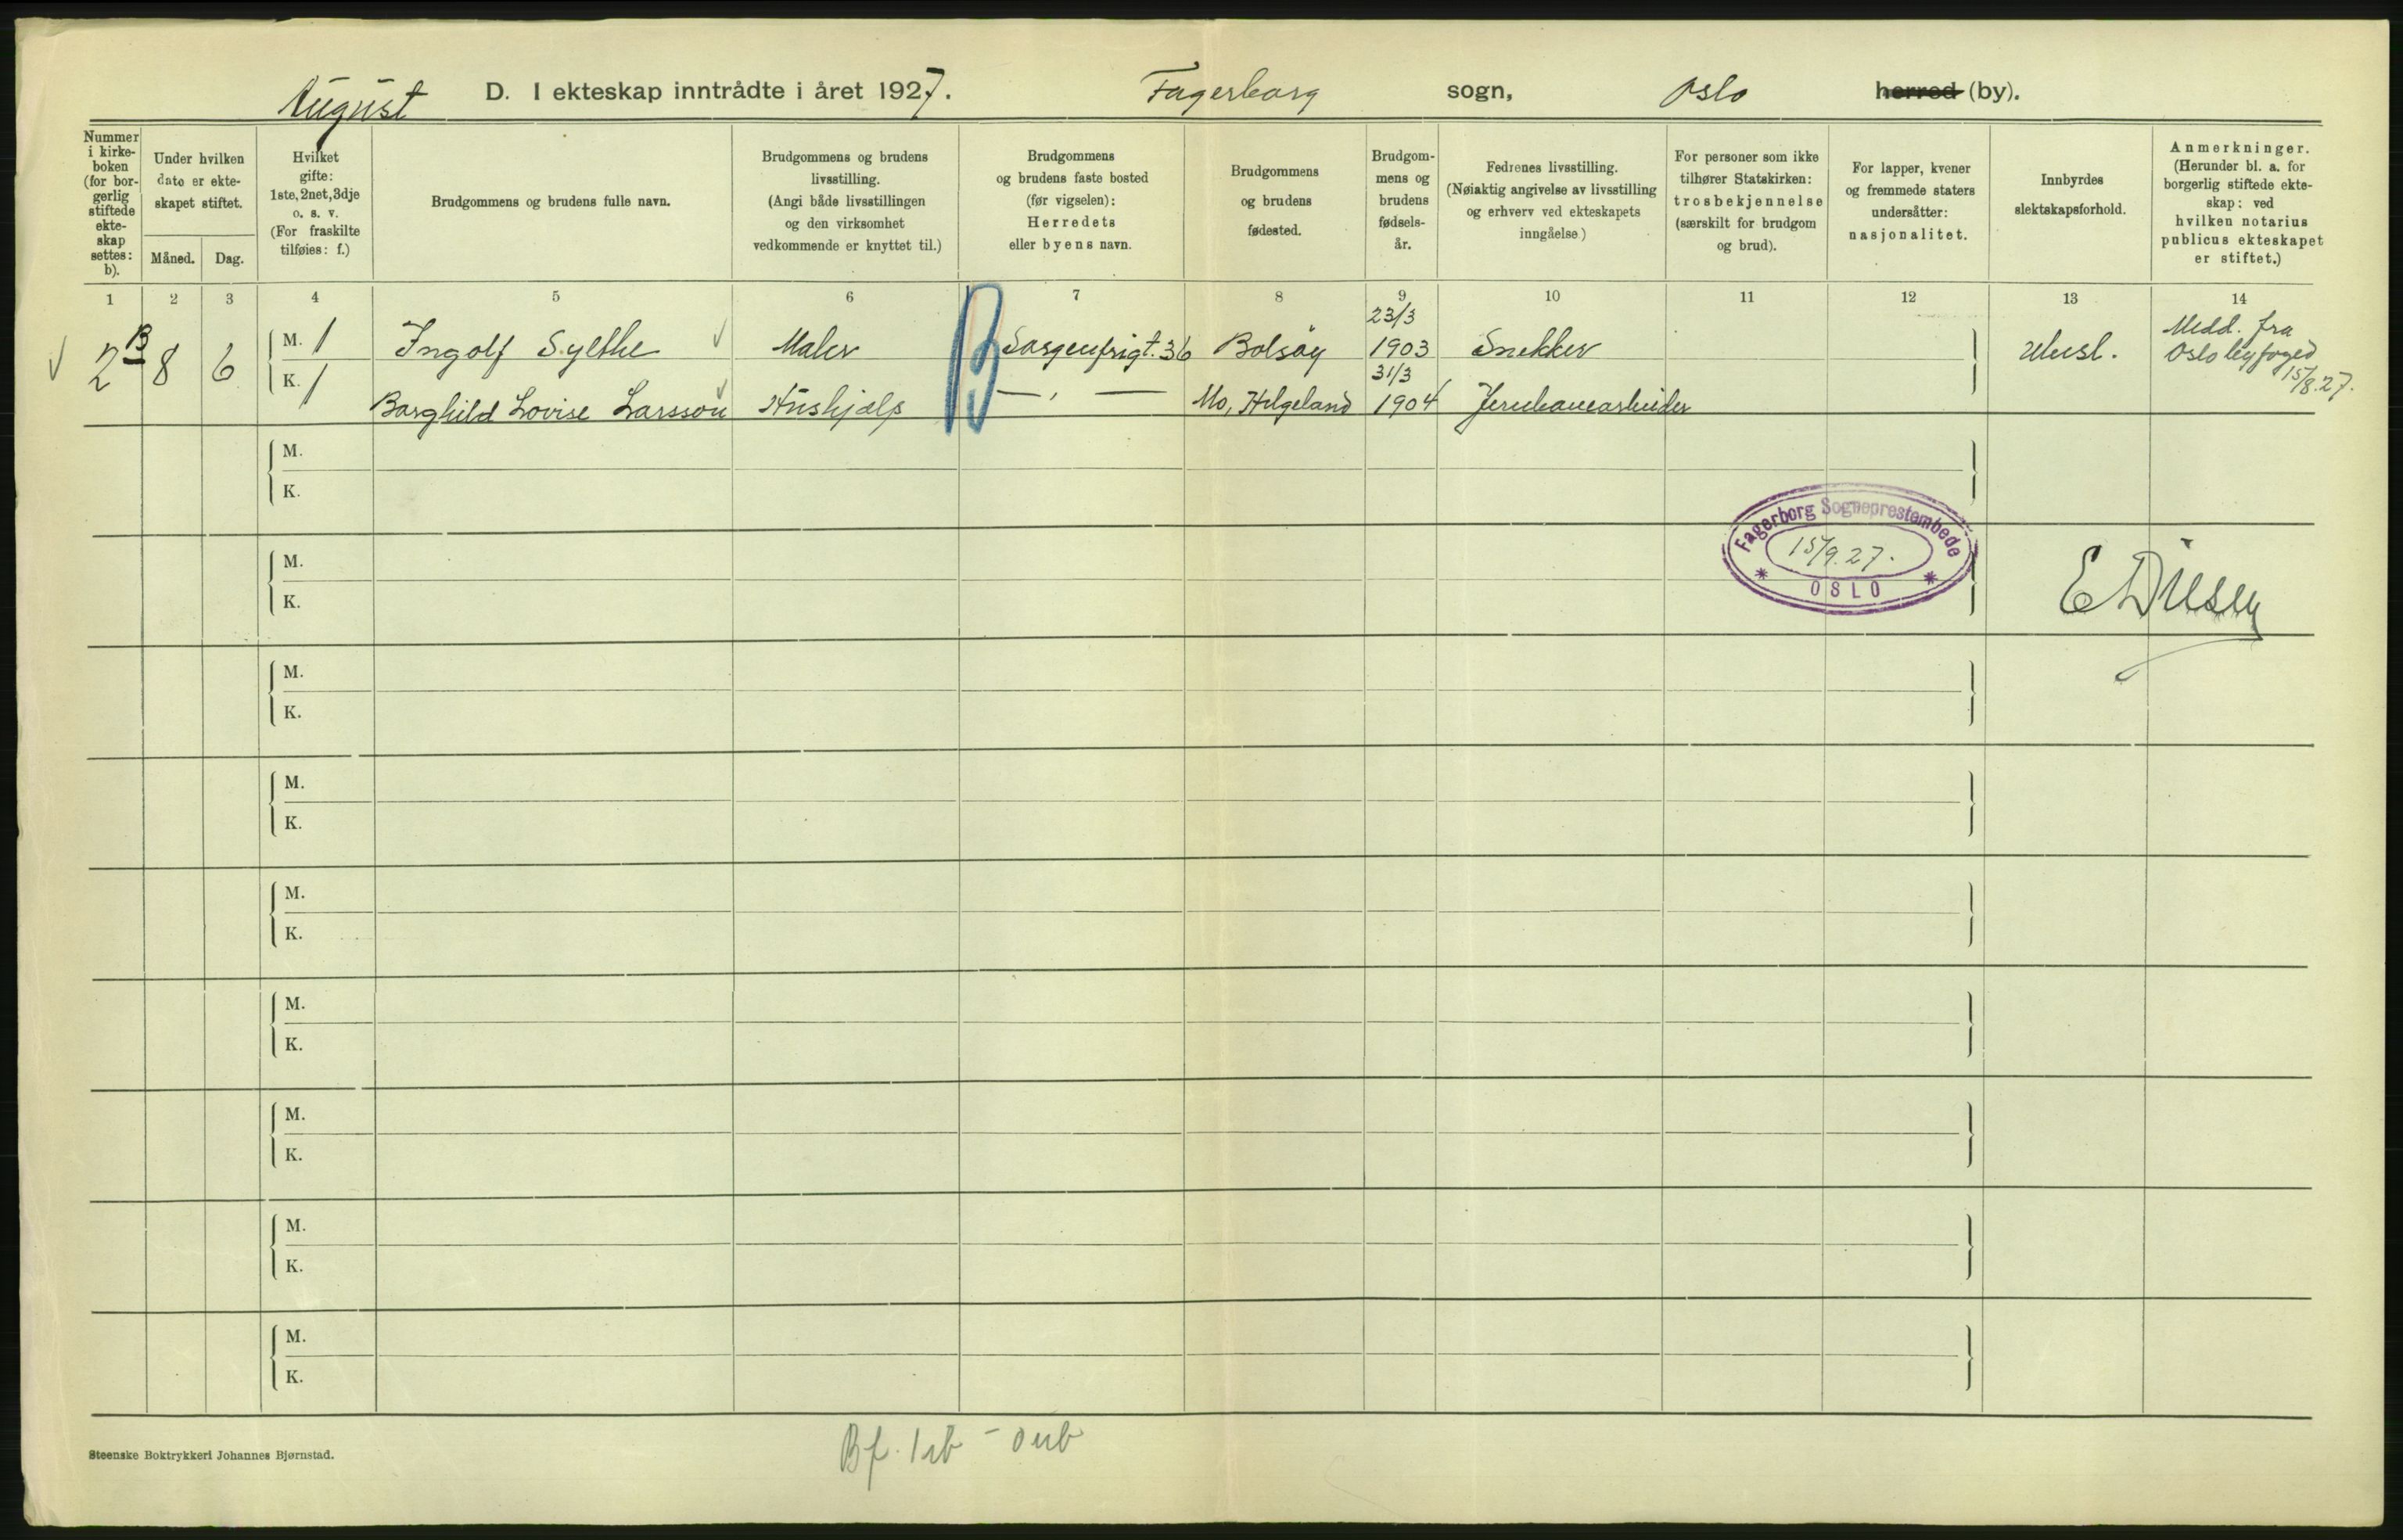 August D. I ekteskap inntrådte i året 1927. Fagerborg sogn, Oslo herred (by).
Nummer
i kirke-
boken
(for bor-
gerlig
stiftede
ekte-
skap
settes:
b).
Under hvilken
dato er ekte-
skapet stiftet.
Måned. Dag.
Hvilket
gifte:
1ste, 2net, 3dje
o. s. v.
(For fraskilte
tilføies: f.)
Brudgommens og brudens fulle navn.
Brudgommens og brudens
livsstilling.
(Angi både livsstillingen
og den virksomhet
vedkommende er knyttet til.)
Brudgommens
og brudens faste bosted
(før vigselen):
Herredets
eller byens navn.
Brudgommens
og brudens
fødested.
Brudgom-
mens og
brudens
fødsels-
år.
Fedrenes livsstilling.
(Nøiaktig angivelse av livsstilling
og erhverv ved ekteskapets
inngåelse)
For personer som ikke
tilhører Statskirken:
trosbekjennelse
(særskilt for brudgom
og brud).
For lapper, kvener
og fremmede staters
undersåtter:
nasjonalitet.
Innbyrdes
slektskapsforhold.
Anmerkninger.
(Herunder bl. a. for
borgerlig stiftede ekte-
skap: ved
hvilken notarius
publicus ekteskapet
er stiftet.)
1 2 3 4 5 6 7 8 9 10 11 12 13 14
2 B 8 6 M. 1 Ingolf Sylthe Maler B Sorgenfrigt. 36 Bolsøy 23/3 1903 Snekker Ubesl. Medd. fra
Oslo byfoged
15/8.27.
K. 1 Borghild Lovise Larsson Hushjelp — , — Mo, Helgeland 31/3 1904 Jernbanearbeider
M.
K.
M.
K.
Fagerborg Sogneprestembede
15/9.27.
* OSLO *
M.
K.
M.
K.
M.
K.
M.
K.
M.
K.
M.
K.
M.
K.
Steenske Boktrykkeri Johannes Bjørnstad.